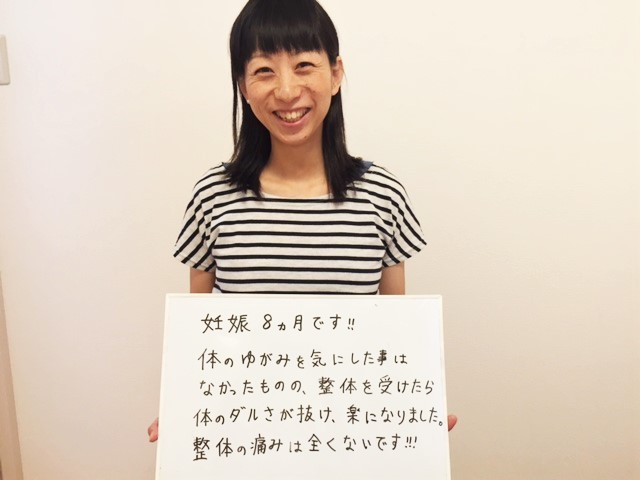 妊娠 8ヵ月です!!
体のゆがみを気にした事は
なかったものの、整体を受けたら
体のダルさが抜け、楽になりました。
整体の痛みは全くないです!!!